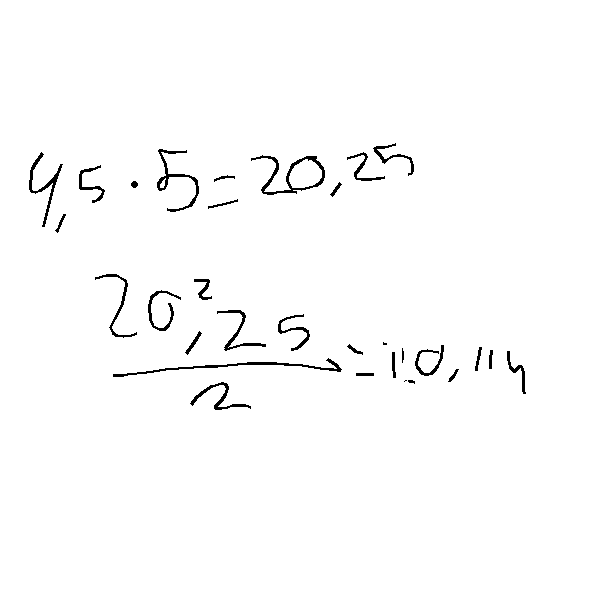 4,5 · 5 = 20,25
20²,25 / 2 = 10,114